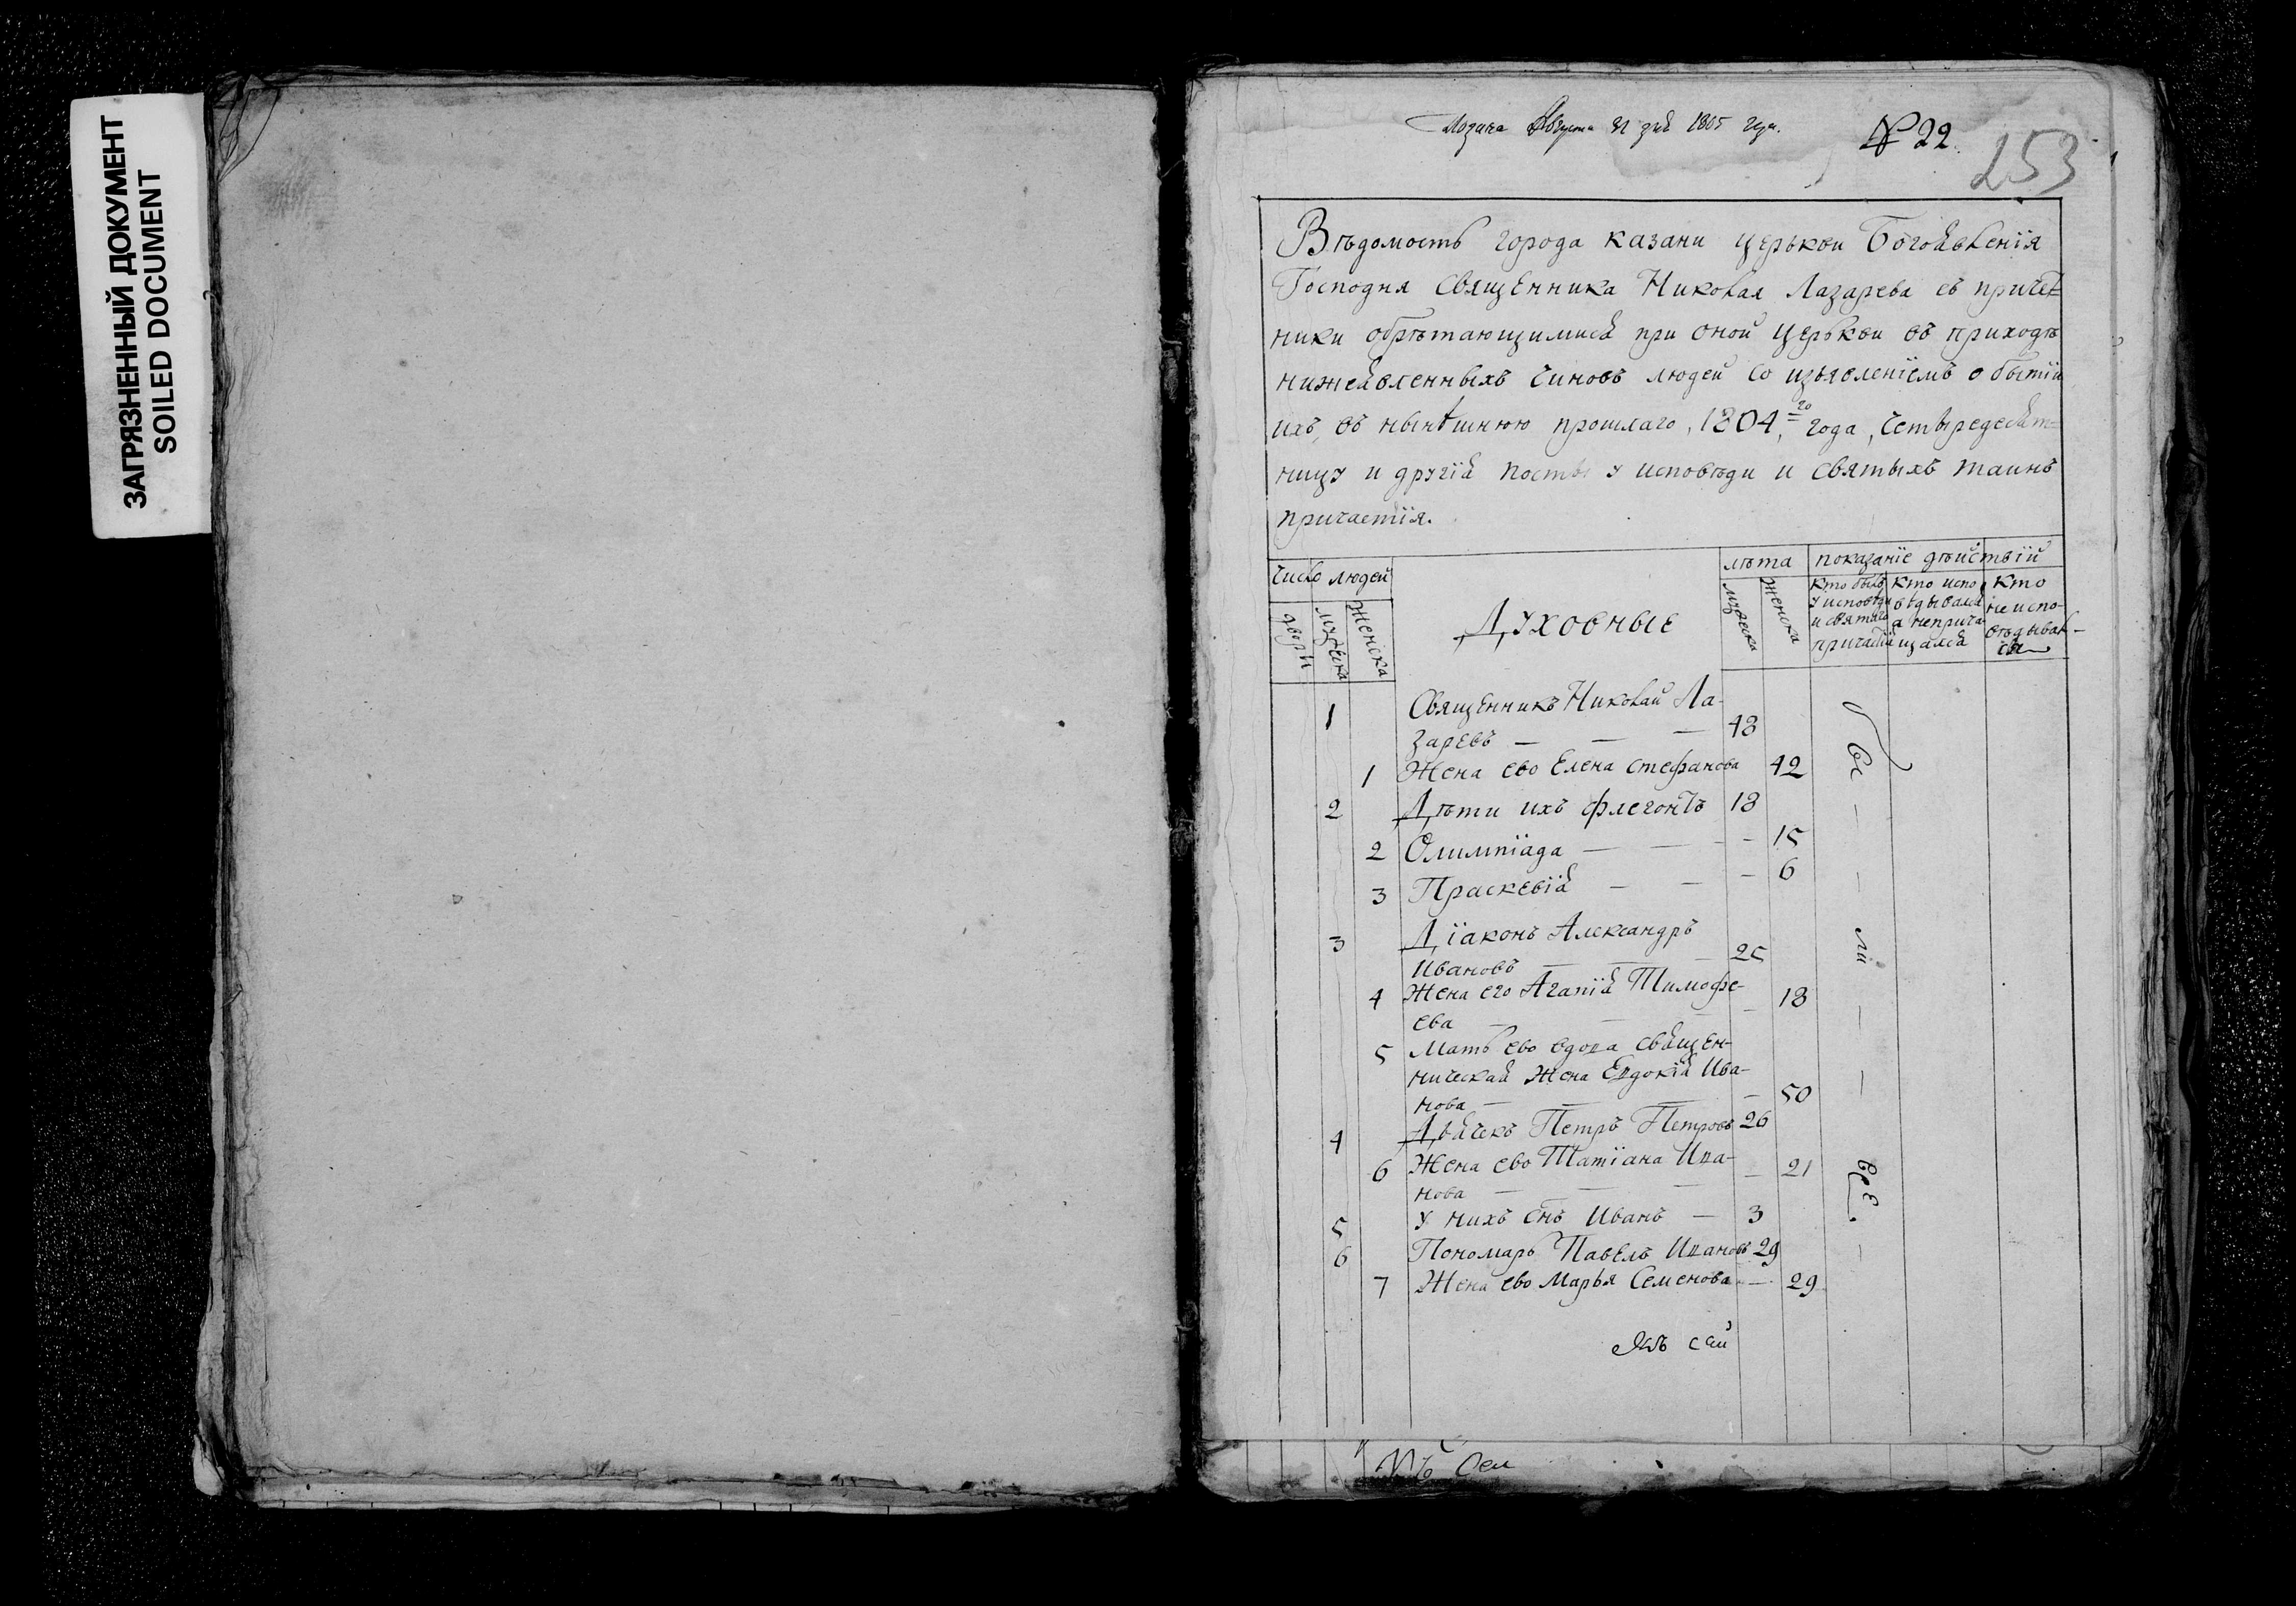 ЗАГРЯЗНЕННЫЙ ДОКУМЕНТ
SOILED DOCUMENT
Августа 31 дня 1805 года.
№ 22.
253
Вѣдомость города казани церькви Богоявленія
Господня Священника Николая Лазарева съ причет=
ники обрѣтающимися при оной церькви въ приходѣ
нижеявленныхъ чиновъ людей со изъявленіемъ о бытіи
ихъ, въ нынѣшнюю прошлаго, 1804, го года, четыредесят=
ницу и другія посты у исповѣди и святыхъ таинъ
причастія.
число людей
лѣта
показаніе дѣйствій
двори
мужеска
женска
Духовные
мужеска
женска
кто былъ у исповѣди и святаго причастія
кто исповѣдывался а непричащался
кто не исповѣдывался
1 Священникъ Николай Ла-
заревъ — — — 48
1 Жена ево Елена Стефанова 42
2 Дѣти ихъ Флегонтъ 18
2 Олимпіада — — - - 15
3 Праскевія — — - 6
3 Діаконъ Александръ
Ивановъ — — - 25
4 Жена его Агапія Тимофе-
ева — — - - 18
5 Мать ево вдова священ-
ническая жена Евдокія Ива-
нова — — — - 50
4 Дьячекъ Петръ Петровъ 26
6 Жена ево Татіана Ива-
нова — — — - 21
5 У нихъ снъ Иванъ — 3
6 Пономарь Павелъ Ивановъ 29
7 Жена ево Марья Семенова — 29
были
все.